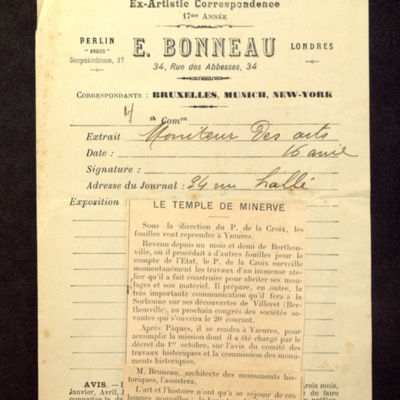 Ex-Artistic Correspondence
17me ANNÉE
PERLIN
"ARGUS"
Georgenkirchstrasse, 37
E. BONNEAU
LONDRES
34, Rue des Abbesses, 34
CORRESPONDANTS : BRUXELLES, MUNICH, NEW-YORK
Com on
Extrait Moniteur des arts
Date : 16 avril
Signature :
Adresse du Journal : 34 rue hallé
Exposition
LE TEMPLE DE MINERVE
Sous la direction du P. de la Croix, les
fouilles vont reprendre à Yzeures.
Revenu depuis un mois et demi de Berthou-
ville, où il procédait à d'autres fouilles pour le
compte de l'Etat, le P. de la Croix surveille
momentanément les travaux d'un immense ate-
lier qu'il a fait construire pour abriter ses mou-
lages et son matériel. Il prépare, en outre, la
très importante communication qu'il fera à la
Sorbonne sur ses découvertes de Villeret (Ber-
thouville), au prochain congrès des sociétés sa-
vantes qui s'ouvrira le 20 courant.
Après Pâques, il se rendra à Yzeures, pour
accomplir la mission dont il a été chargé par le
décret du 1er octobre, sur l'avis du comité des
travaux historiques et la commission des monu-
ments historiques.
M. Bruneau, architecte des monuments his-
toriques, l'assistera.
L'art et l'histoire n'ont qu'à se réjouir de ces
AVIS.
rois mois,
Janvier, Avril,
de faire